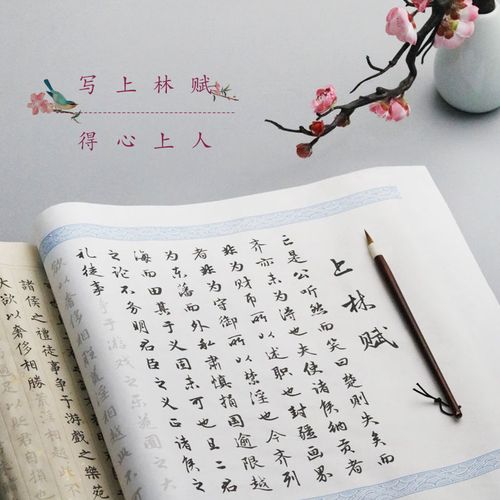 写上林赋
得心上人
上林赋
亡是公听然而笑曰楚则失矣而
齐亦未为得也夫使诸侯纳贡者
非为财币所以述职也封疆画界
者非为守御所以禁淫也今齐列
为东藩而外私肃慎捐国逾限越
海而田其于义固未可也且二君
之论不务明君臣之义正诸侯之
礼徒事争于游戏之乐苑囿之大
欲以奢侈相胜荒淫相越此不
諸侯之禮徒事争于游戲之樂苑
大欲以奢侈相勝